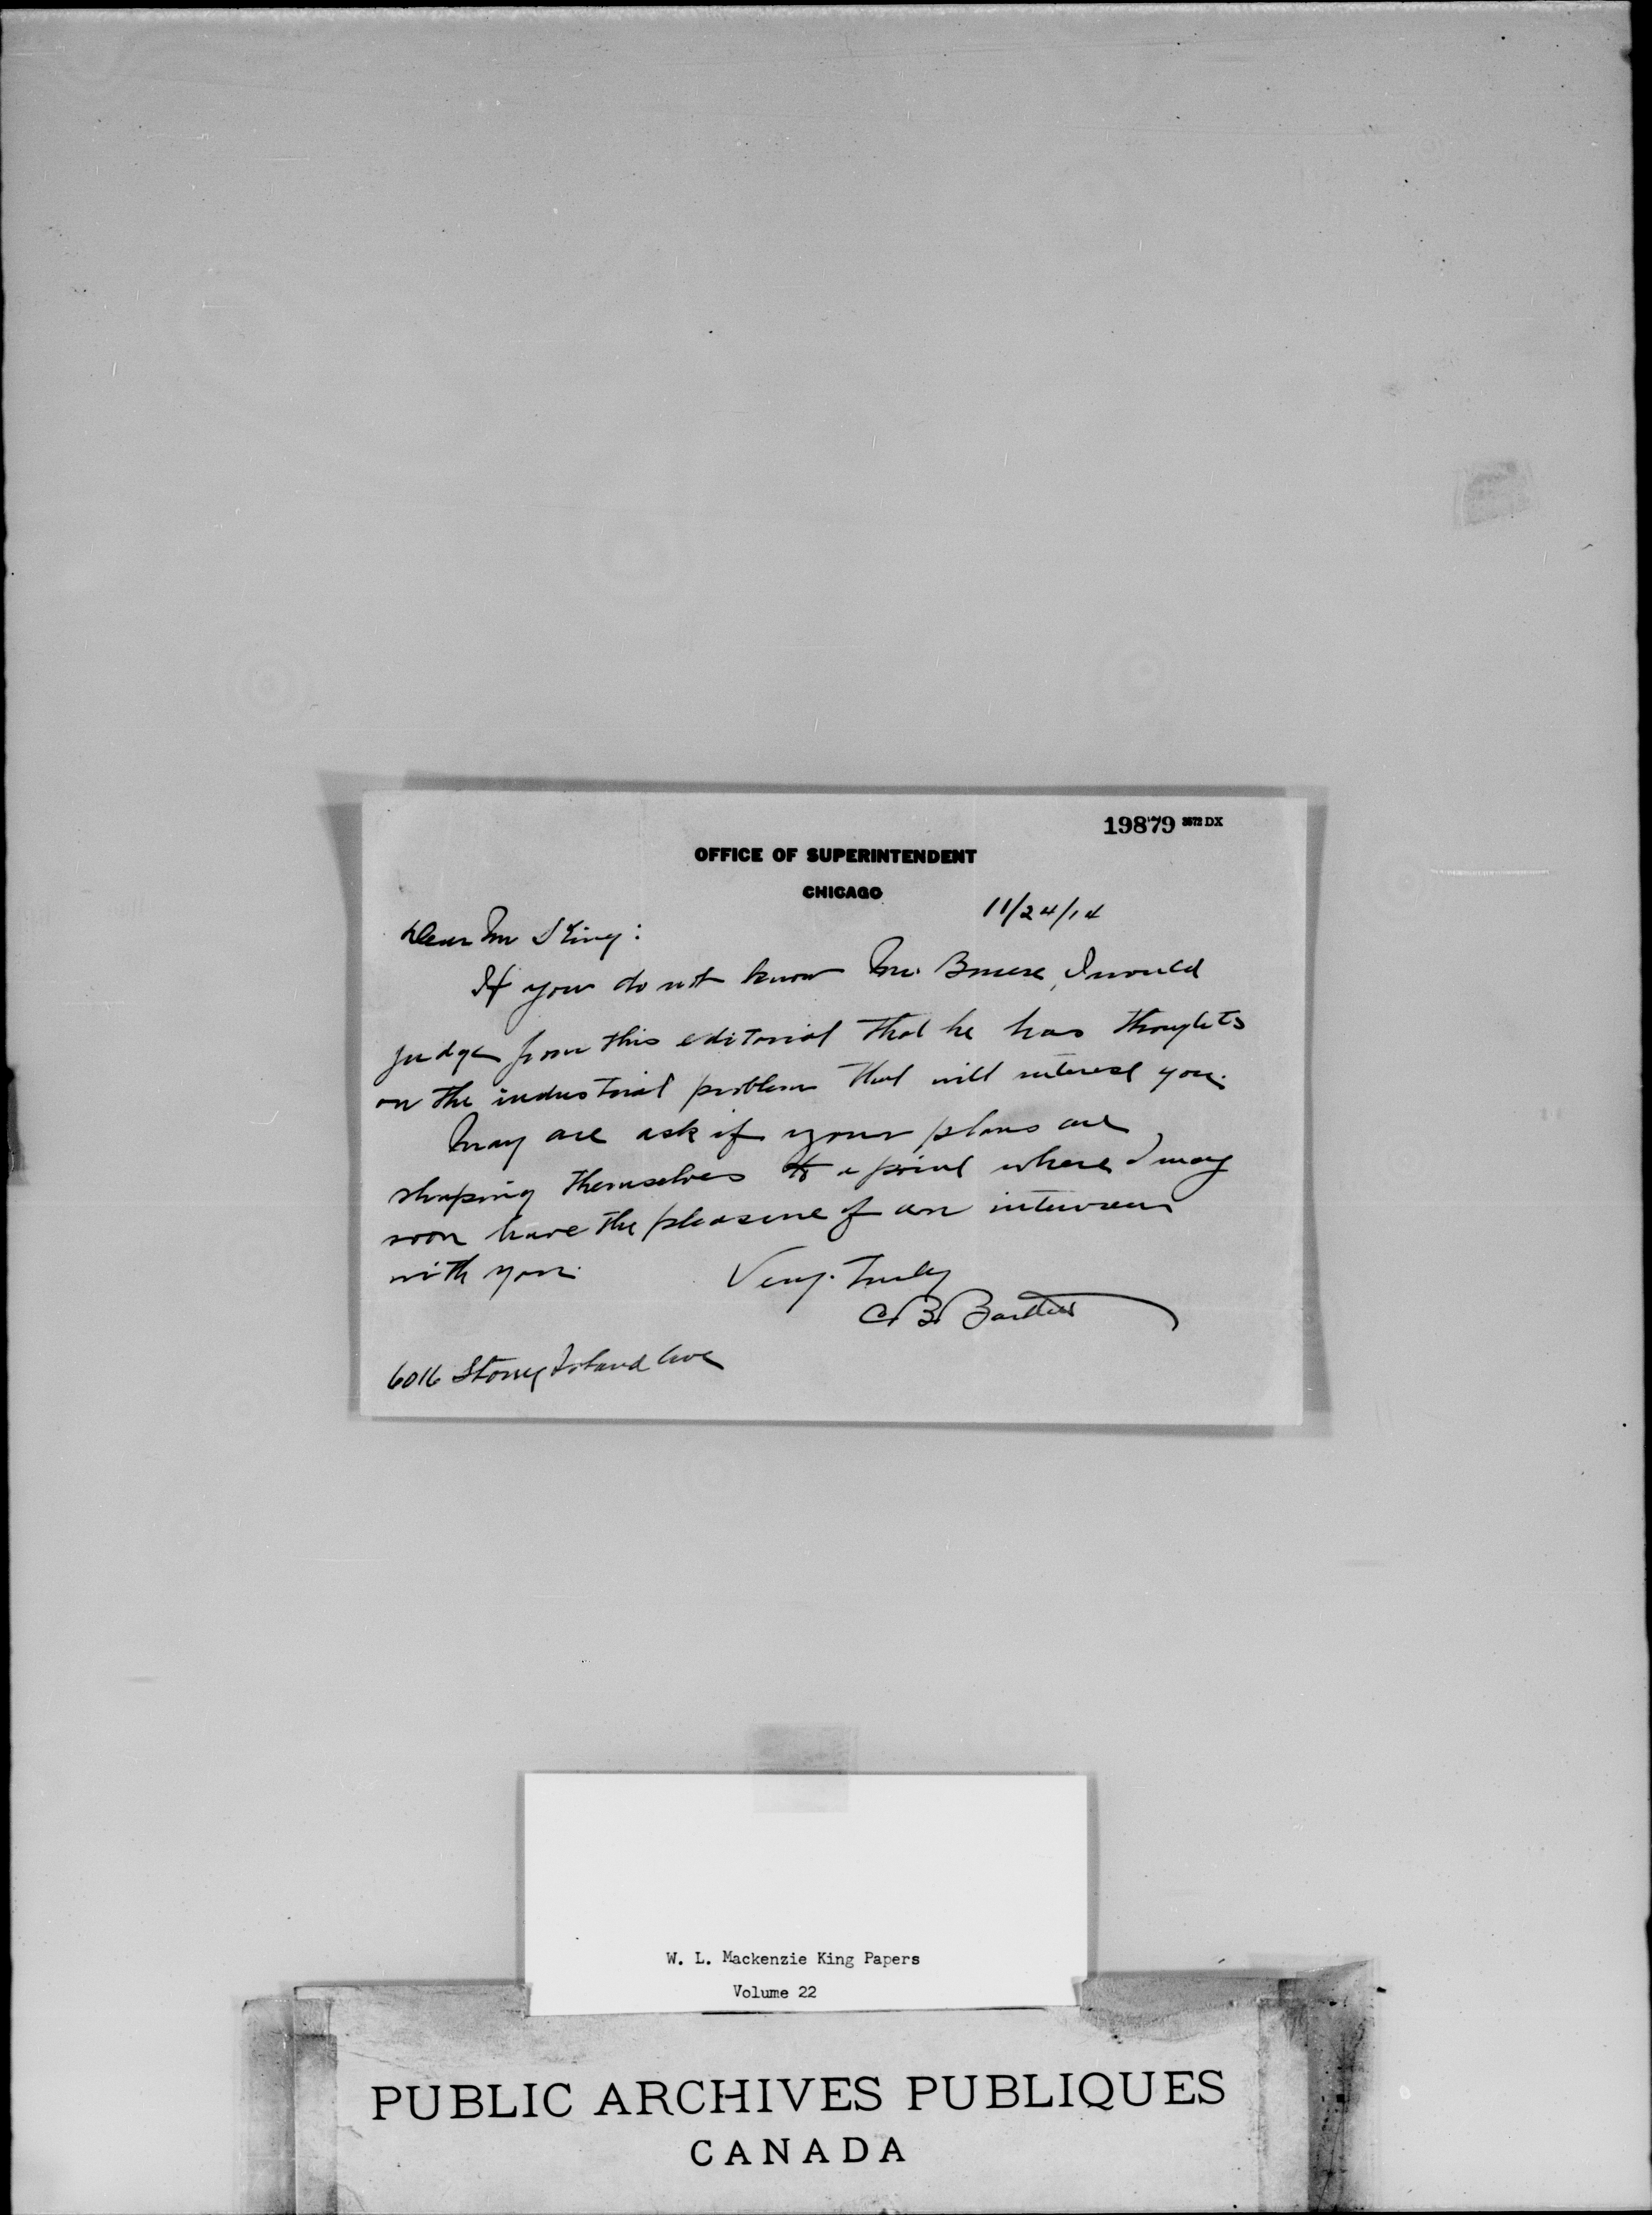 19879 3572 DX
OFFICE OF SUPERINTENDENT
CHICAGO
11/24/14
Dear Mr King:
If you do not know Mr. Bruere, I would
judge from this editorial that he has thoughts
on the industrial problem that will interest you.
May ask if your plans are
shaping themselves to a point where I may
soon have the pleasure of an interview
with you.
Very Truly
C. B. Bartlett
6016 Stony Island Ave
W. L. Mackenzie King Papers
Volume 22
PUBLIC ARCHIVES PUBLIQUES
CANADA